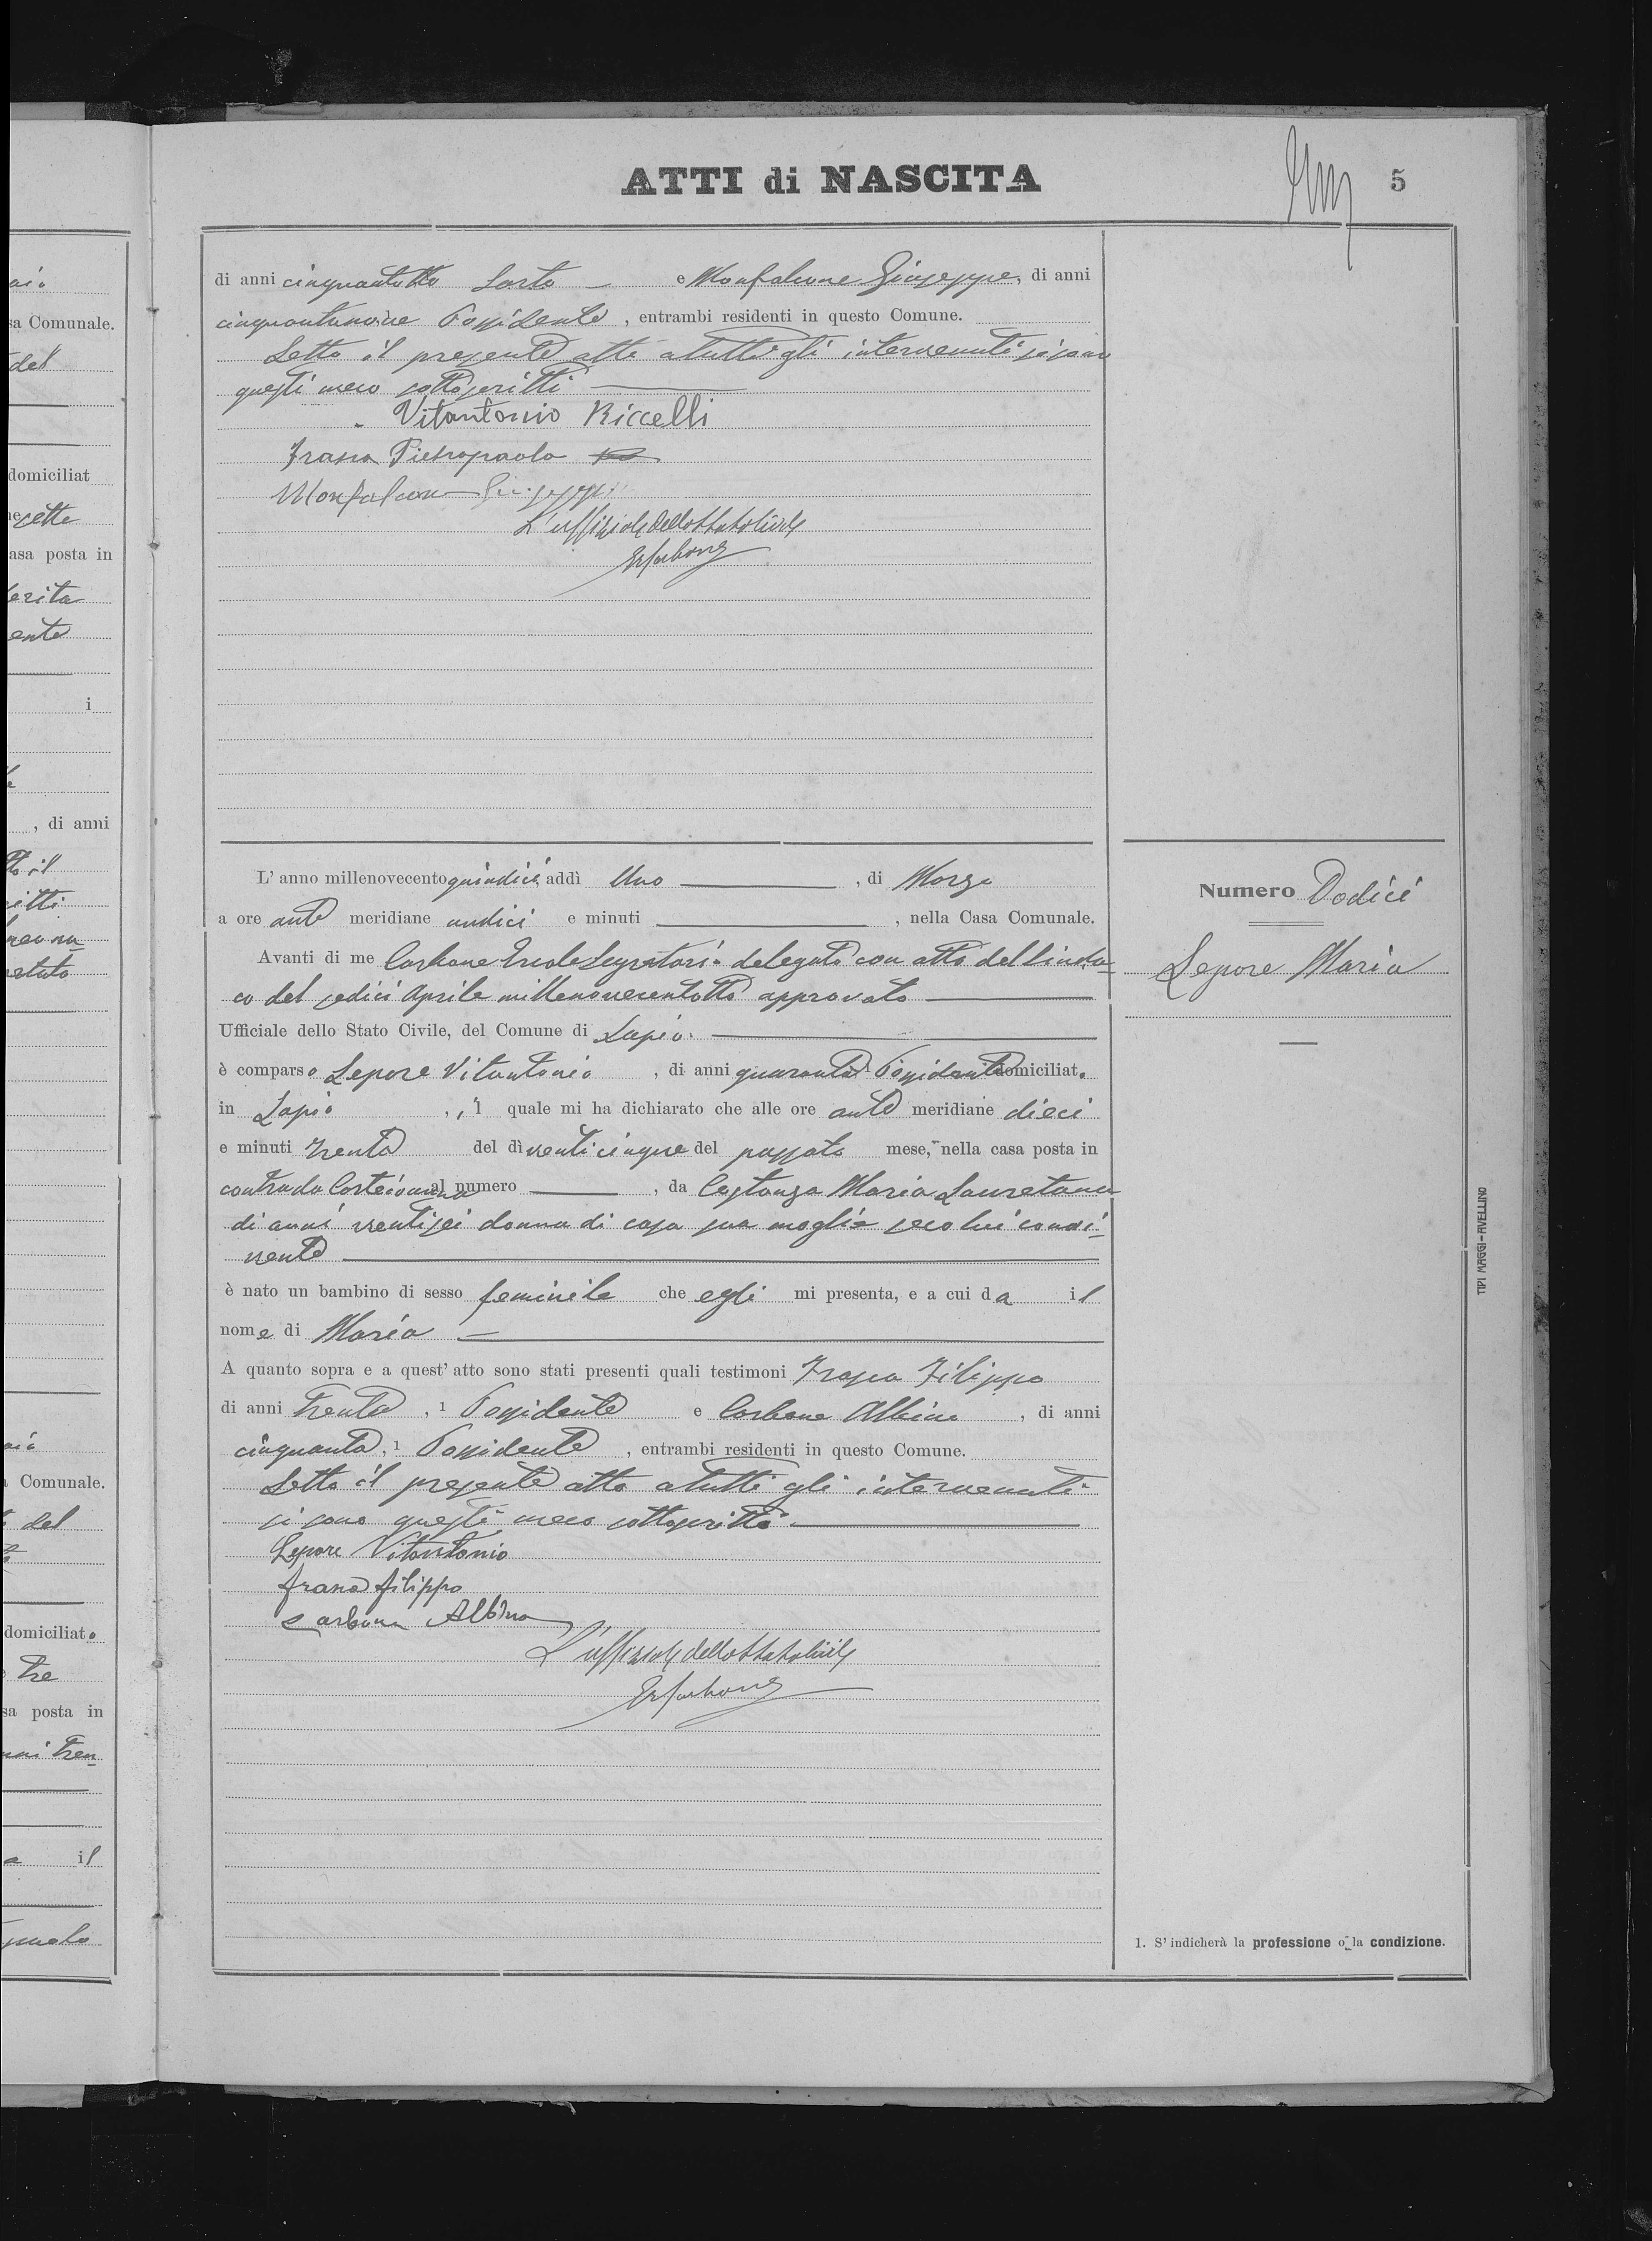 ATTI di NASCITA
5
di anni cinquantotto Sarto e Monfalcone Giuseppe, di anni
cinquantanove Possidente, entrambi residenti in questo Comune.
Letto il presente atto a tutti gli intervenuti si sono
questi meco sottoscritti
Vitantonio Riccelli
Frasca Pietropaolo
Monfalcone Giuseppe
L'uffiziale dello Stato Civile
L'anno millenovecento quindici, addì Uno, di Marzo
a ore ante meridiane undici e minuti , nella Casa Comunale.
Avanti di me Carbone Ercole Segretario delegato con atto del Sinda-
co del sedici Aprile millenovecentotto approvato
Ufficiale dello Stato Civile, del Comune di Lapio
è comparso Lepore Vitantonio, di anni quaranta Possidente domiciliato
in Lapio, il quale mi ha dichiarato che alle ore ante meridiane dieci
e minuti trenta del dì venticinque del passato mese, nella casa posta in
contrada al numero , da Costanza Maria Lauretana
di anni ventisei donna di casa sua moglie seco lui convi-
vente
è nato un bambino di sesso feminile che egli mi presenta, e a cui da il
nome di Maria
A quanto sopra e a quest'atto sono stati presenti quali testimoni Frasca Filippo
di anni trenta, 1 Possidente e Carbone Albino, di anni
cinquanta, 1 Possidente, entrambi residenti in questo Comune.
Letto il presente atto a tutti gli intervenuti
si sono questi meco sottoscritti.
Lepore Vitantonio
Frasca Filippo
Carbone Albino
L'uffiziale dello Stato Civile
Numero Dodici
Lepore Maria
TIPI MAGGI-AVELLINO
1. S'indicherà la professione o la condizione.
sa Comunale.
del
domiciliat
sette
asa posta in
ente
i
, di anni
Comunale.
del
domiciliato
tre
sa posta in
tren-
il